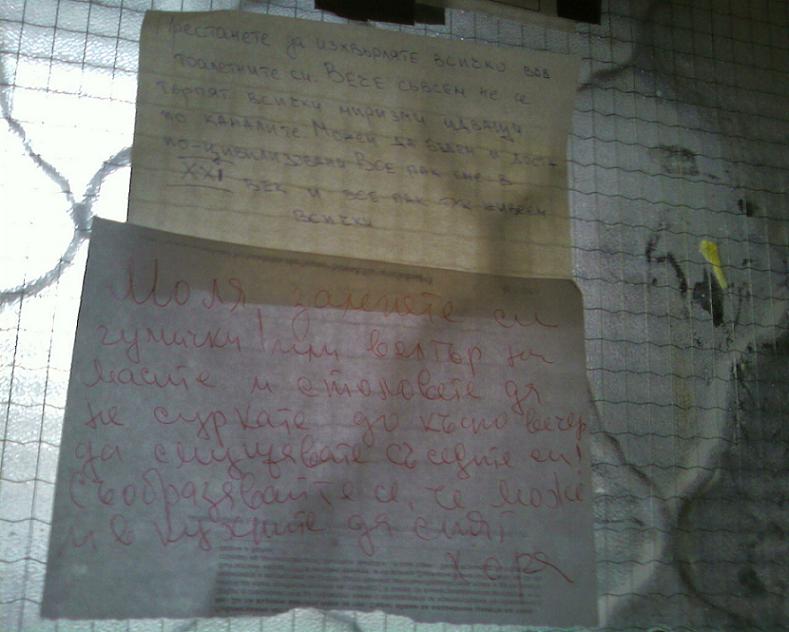 Престанете да изхвърляте всичко във
тоалетните си. Вече съвсем не се
търпят всички миризми идващи
по каналите Може и да бъдем и доста
по-цивилизовани Все пак сме в
XXI век и все пак тук живеем
всички
Моля, залепете си
гумички или велтър на
масите и столовете да
не суркате до късно вечер
да смущавате съседите си!
Съобразявайте се, че може
и в кухните да спят
хора